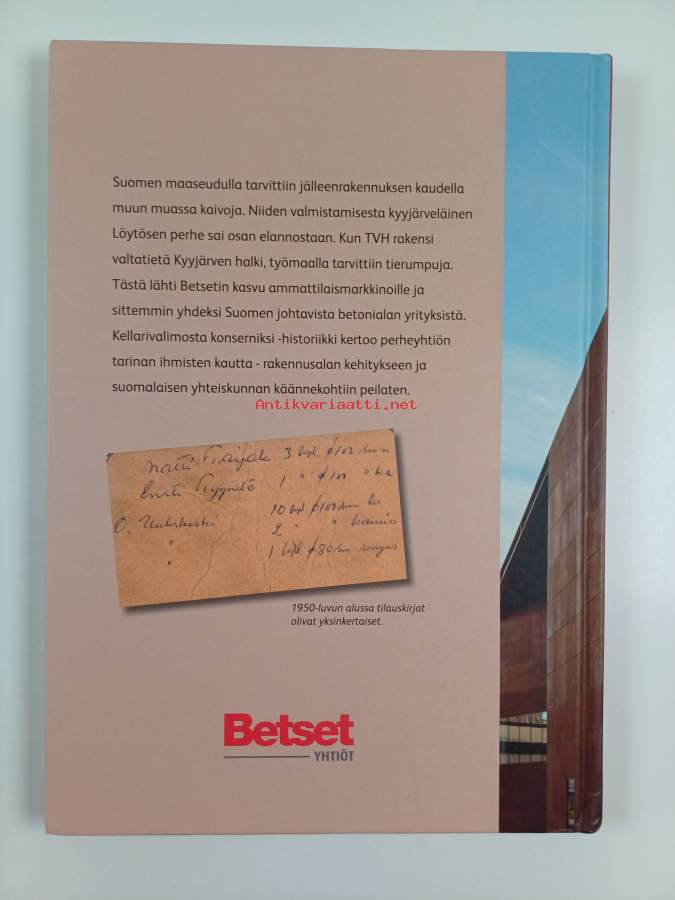 Suomen maaseudulla tarvittiin jälleenrakennuksen kaudella
muun muassa kaivoja. Niiden valmistamisesta kyyjärveläinen
Löytösen perhe sai osan elannostaan. Kun TVH rakensi
valtatietä Kyyjärven halki, työmaalla tarvittiin tierumpuja.
Tästä lähti Betsetin kasvu ammattilaismarkkinoille ja
sittemmin yhdeksi Suomen johtavista betonialan yrityksistä.
Kellarivalimosta konserniksi -historiikki kertoo perheyhtiön
tarinan ihmisten kautta - rakennusalan kehitykseen ja
suomalaisen yhteiskunnan käännekohtiin peilaten.
Antikvariaatti.net
3 kpl
1 "
10 kpl
2 "
1 kpl
1950-luvun alussa tilauskirjat
olivat yksinkertaiset.
Betset
YHTIÖT